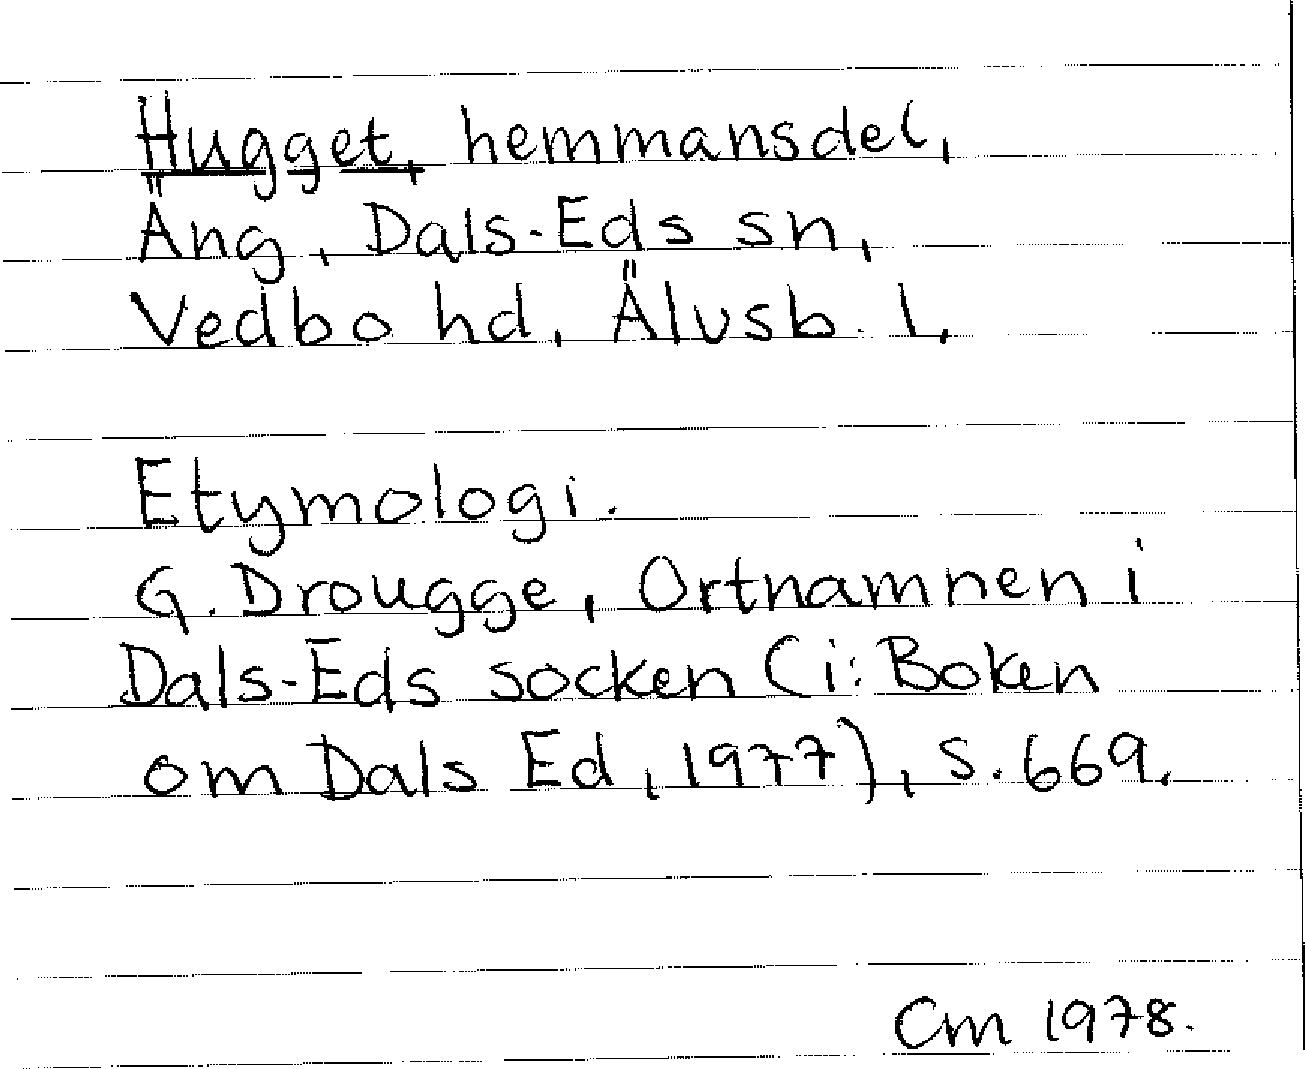 Hugget, hemmansdel,
Äng, Dals-Eds sn,
Vedbo hd, Älvsb. l.
Etymologi.
G. Drougge, Ortnamnen i
Dals-Eds socken (i: Boken
om Dals Ed, 1977), s. 669.
Cm 1978.